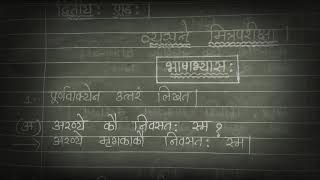 द्वितीयः पाठः
व्यसने मित्रपरीक्षा।
भाषाभ्यासः
1. पूर्णवाक्येन उत्तरं लिखत।
(अ) अरण्ये कौ निवसतः स्म ?
→ अरण्ये मृगकाकौ निवसतः स्म।